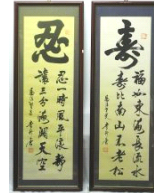 忍
忍一時風平浪靜
讓三分海闊天空
壽
福如東海長流水
壽比南山不老松